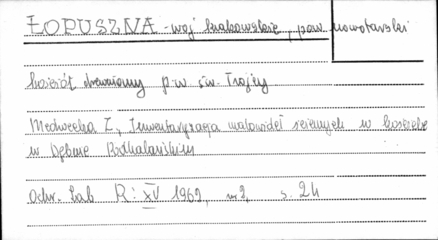 ŁOPUSZNA - woj. krakowskie, pow. nowotarski
kościół drewniany p.w. św. Trójcy
Medwecka Z., Inwentaryzacja malowideł ściennych w kościele
w Dębnie Podhalańskim
Ochr. Zab. R: XV 1962, nr 2, s. 24